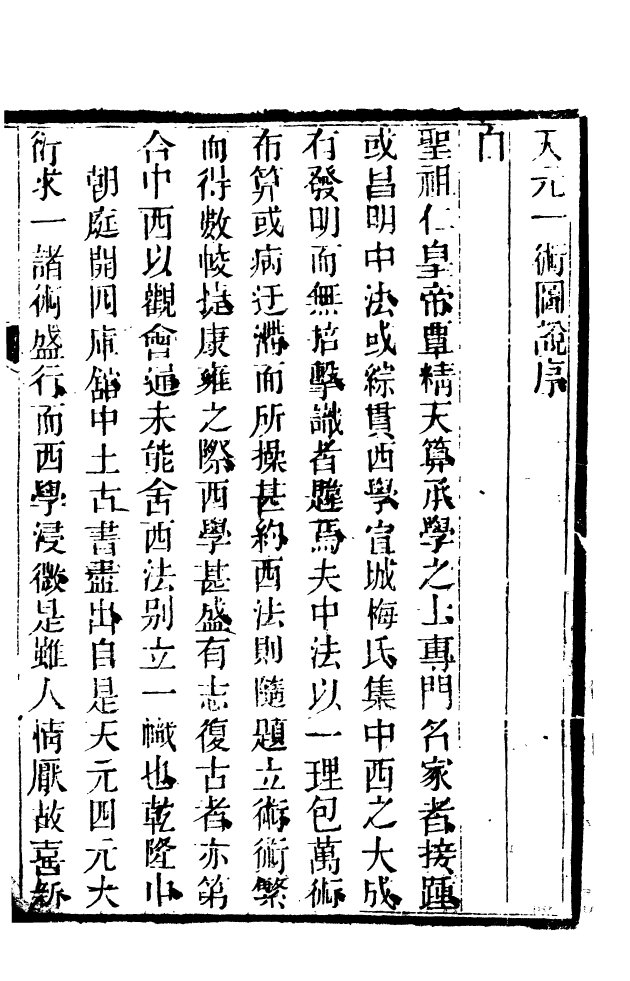 天元一術圖說序
自
聖祖仁皇帝覃精天算承學之士專門名家者接踵
或昌明中法或綜貫西學宣城梅氏集中西之大成
有發明而無掊擊識者韙焉夫中法以一理包萬術
布算或病迂滯而所操甚約西法則隨題立術術繁
而得數悛捷康雍之際西學甚盛有志復古者亦第
合中西以觀會通未能舍西法别立一幟也乾隆中
朝庭開四庫舘中土古書盡出自是天元四元大
衍求一諸術盛行而西學浸微是雖人情厭故喜新